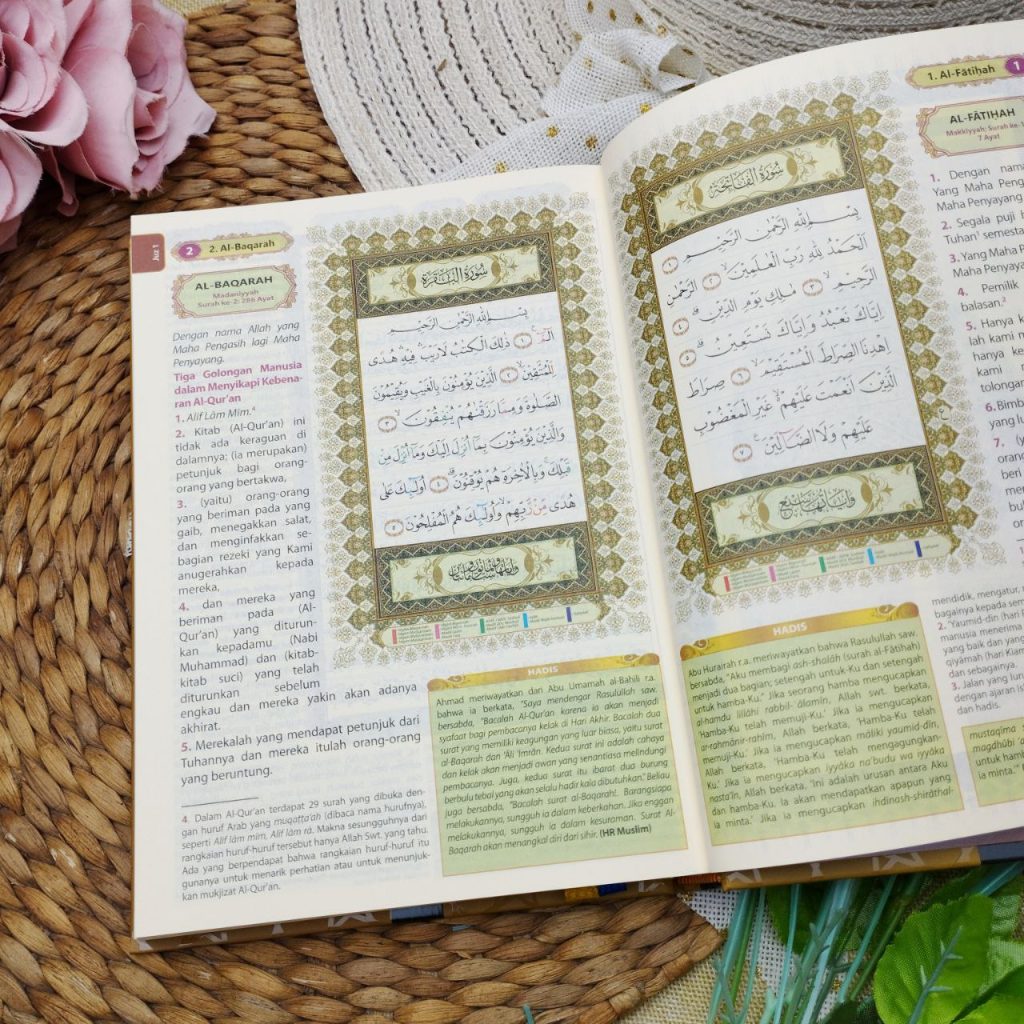 Juz 1
2 2. Al-Baqarah
AL-BAQARAH
Madaniyyah
Surah ke-2: 286 Ayat
Dengan nama Allah yang
Maha Pengasih lagi Maha
Penyayang.
Tiga Golongan Manusia
dalam Menyikapi Kebena-
ran Al-Qur'an
1. Alif Lām Mīm.⁴
2. Kitab (Al-Qur'an) ini
tidak ada keraguan di
dalamnya; (ia merupakan)
petunjuk bagi orang-
orang yang bertakwa,
3. (yaitu) orang-orang
yang beriman pada yang
gaib, menegakkan salat,
dan menginfakkan se-
bagian rezeki yang Kami
anugerahkan kepada
mereka,
4. dan mereka yang
beriman pada (Al-
Qur'an) yang diturun-
kan kepadamu (Nabi
Muhammad) dan (kitab-
kitab suci) yang telah
diturunkan sebelum
engkau dan mereka yakin akan adanya
akhirat.
5. Merekalah yang mendapat petunjuk dari
Tuhannya dan mereka itulah orang-orang
yang beruntung.
4 Dalam Al-Qur'an terdapat 29 surah yang dibuka den-
gan huruf Arab yang muqaṭṭa'ah (dibaca nama hurufnya),
seperti Alif lām mīm, Alif lām rā. Makna sesungguhnya dari
rangkaian huruf-huruf tersebut hanya Allah Swt. yang tahu.
Ada yang berpendapat bahwa rangkaian huruf-huruf itu
gunanya untuk menarik perhatian atau untuk menunjuk-
kan mukjizat Al-Qur'an.
سُوْرَةُ الْبَقَرَةِ
بِسْمِ اللّٰهِ الرَّحْمٰنِ الرَّحِيْمِ
الٓمّٓ ١ ذٰلِكَ الْكِتٰبُ لَا رَيْبَ فِيْهِ هُدًى
لِّلْمُتَّقِيْنَ ٢ الَّذِيْنَ يُؤْمِنُوْنَ بِالْغَيْبِ وَيُقِيْمُوْنَ
الصَّلٰوةَ وَمِمَّا رَزَقْنٰهُمْ يُنْفِقُوْنَ ٣
وَالَّذِيْنَ يُؤْمِنُوْنَ بِمَآ اُنْزِلَ اِلَيْكَ وَمَآ اُنْزِلَ مِنْ
قَبْلِكَ وَبِالْاٰخِرَةِ هُمْ يُوْقِنُوْنَ ٤ اُولٰۤىِٕكَ عَلٰى
هُدًى مِّنْ رَّبِّهِمْ وَاُولٰۤىِٕكَ هُمُ الْمُفْلِحُوْنَ ٥
HADIS
Ahmad meriwayatkan dari Abu Umamah al-Bahili r.a.
bahwa ia berkata, "Saya mendengar Rasulullah saw.
bersabda, "Bacalah Al-Qur'an karena ia akan menjadi
syafaat bagi pembacanya kelak di Hari Akhir. Bacalah dua
surat yang memiliki keagungan yang luar biasa, yaitu surat
al-Baqarah dan 'Āli 'Imrān. Kedua surat ini adalah cahaya
dan kelak akan menjadi awan yang senantiasa melindungi
pembacanya. Juga, kedua surat itu ibarat dua burung
berbulu tebal yang akan selalu hadir kala dibutuhkan." Beliau
juga bersabda, "Bacalah surat al-Baqarah!. Barangsiapa
melakukannya, sungguh ia dalam keberkahan. Jika enggan
melakukannya, sungguh ia dalam kesuraman. Surat Al-
Baqarah akan menangkal diri dari sihir. (HR Muslim)
سُوْرَةُ الْفَاتِحَةِ
بِسْمِ اللّٰهِ الرَّحْمٰنِ الرَّحِيْمِ ١
اَلْحَمْدُ لِلّٰهِ رَبِّ الْعٰلَمِيْنَ ٢ الرَّحْمٰنِ
الرَّحِيْمِ ٣ مٰلِكِ يَوْمِ الدِّيْنِ ٤
اِيَّاكَ نَعْبُدُ وَاِيَّاكَ نَسْتَعِيْنُ ٥
اِهْدِنَا الصِّرَاطَ الْمُسْتَقِيْمَ ٦ صِرَاطَ
الَّذِيْنَ اَنْعَمْتَ عَلَيْهِمْ غَيْرِ الْمَغْضُوْبِ
عَلَيْهِمْ وَلَا الضَّاۤلِّيْنَ ٧
وَاٰيَاتُهَا سَبْعٌ
HADIS
Abu Hurairah r.a. meriwayatkan bahwa Rasulullah saw.
bersabda, "Aku membagi ash-shalāh (surah al-Fātiḥah)
menjadi dua bagian; setengah untuk-Ku dan setengah
untuk hamba-Ku." Jika seorang hamba mengucapkan
al-hamdu lillāhi rabbil-'ālamīn, Allah swt. berkata,
'Hamba-Ku telah memuji-Ku.' Jika ia mengucapkan
ar-rahmānir-rahīm, Allah berkata, 'Hamba-Ku telah
memuji-Ku.' Jika ia mengucapkan māliki yaumid-dīn,
Allah berkata, 'Hamba-Ku telah mengagungkan-
Ku.' Jika ia mengucapkan iyyāka na'budu wa iyyāka
nasta'īn, Allah berkata, 'Ini adalah urusan antara Aku
dan hamba-Ku. Ia akan mendapatkan apapun yang
ia minta.' Jika ia mengucapkan ihdinash-shirāthal-
1. Al-Fātiḥah 1
AL-FĀTIḤAH
Makkiyyah: Surah ke-1
7 Ayat
1. Dengan nama
Yang Maha Peng
Maha Penyayang
2. Segala puji
Tuhan¹ semesta
3. Yang Maha
Maha Penyayang
4. Pemilik
balasan.²
5. Hanya k
lah kami
hanya ke
kami m
tolongan
6. Bimb
yang lu
7. (y
mendidik, mengatur,
bagainya kepada sem
2. 'Yaumid-din (hari
manusia menerima
yang baik dan yang
qiyāmah (hari Kiam
dan sebagainya.
3. Jalan yang lur
dengan ajaran is
dan hadis.
mustaqīma
magdhūbi 'a
untuk hamb
ia minta.'"